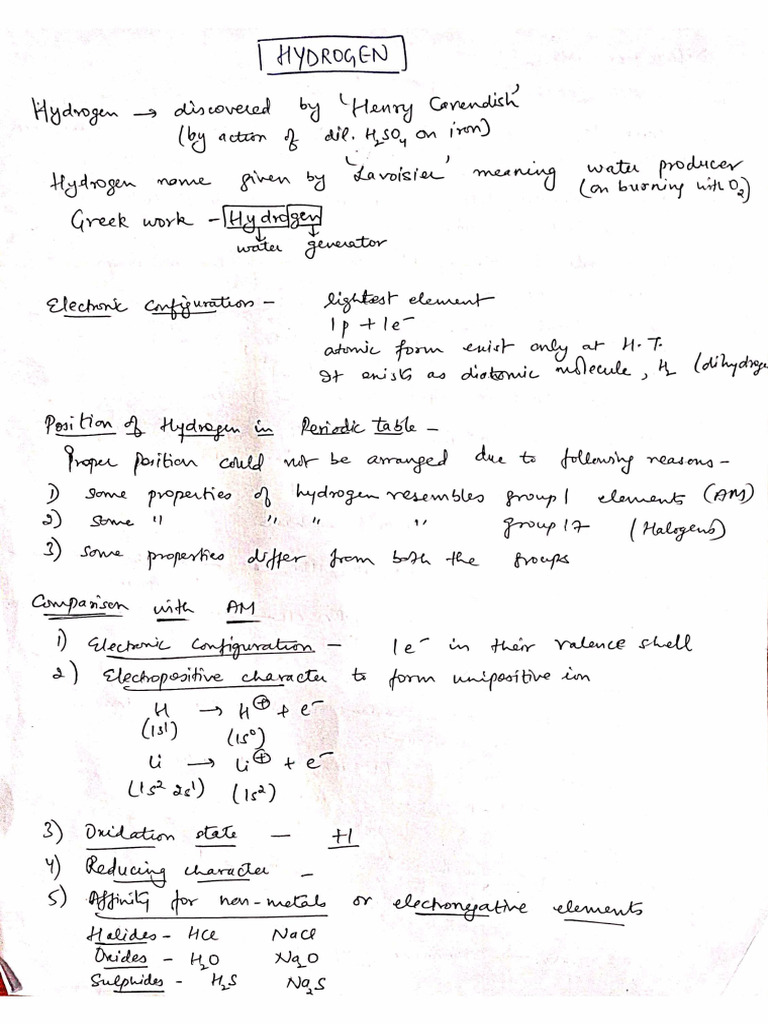 HYDROGEN
Hydrogen → discovered by 'Henry Cavendish'
(by action of dil. H₂SO₄ on iron)
Hydrogen name given by 'Lavoisier' meaning water producer
(on burning with O₂)
Greek work - Hydrogen
water generator
Electronic Configuration - lightest element
1p + 1e⁻
atomic form exist only at H.T.
It exists as diatomic molecule, H₂ (dihydroge
Position of Hydrogen in Periodic table -
Proper position could not be arranged due to following reasons -
1) some properties of hydrogen resembles group 1 elements (AM)
2) some " " " " group 17 (Halogens)
3) some properties differ from both the groups
Comparison with AM
1) Electronic Configuration - 1e⁻ in their valence shell
2) Electropositive character to form unipositive ion
H → H⊕ + e⁻
(1s¹) (1s⁰)
Li → Li⊕ + e⁻
(1s² 2s¹) (1s²)
3) Oxidation state - +1
4) Reducing character -
5) Affinity for non-metals or electronegative elements
Halides - HCl NaCl
Oxides - H₂O Na₂O
Sulphides - H₂S Na₂S